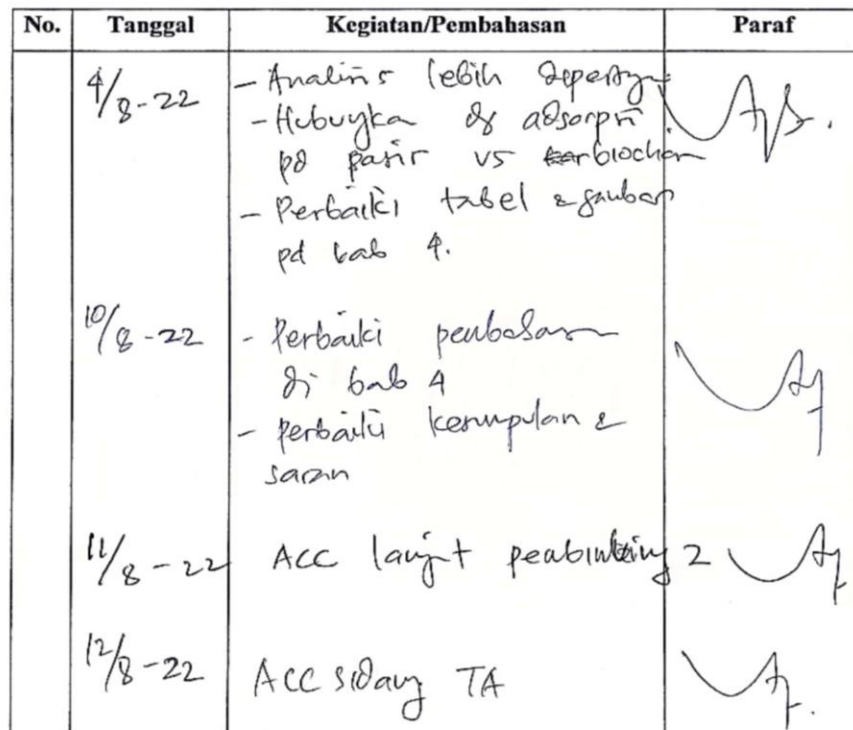 No. Tanggal Kegiatan/Pembahasan Paraf
4/8-22 - Analisis lebih dipertajam
- Hubungkan dg adsorpsi
pd pasir vs biochar
- Perbaiki tabel & gambar
pd bab 4.
10/8-22 - Perbaiki pembahasan
di bab 4
- Perbaiki kesimpulan &
saran
11/8-22 ACC lanjut pembimbing 2
12/8-22 ACC sidang TA